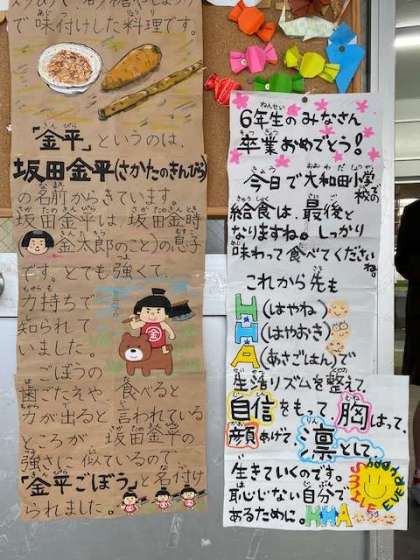 で味付けした料理です。
「金平」というのは、
坂田金平(さかたのきんぴら)
の名前からきています。
坂田金平は、坂田金時
(金太郎のこと)の息子
です。とても強くて、
力持ちで
知られて
いました。
ごぼうの
歯ごたえや 食べると
力が出ると 言われている
ところが 坂田金平の
強さに似ているので、
「金平ごぼう」と名付け
られました。
6年生のみなさん
卒業おめでとう!
今日で大和田小学校の
給食は、最後と
なりますね。しっかり
味わって食べてくださいね。
これから先も
H(はやね)
H(はやおき)
A(あさごはん)で
生活リズムを整えて、
自信をもって、胸はって、
顔あげて、凛として、
生きていくのです。
恥じない自分で
あるために。HHA